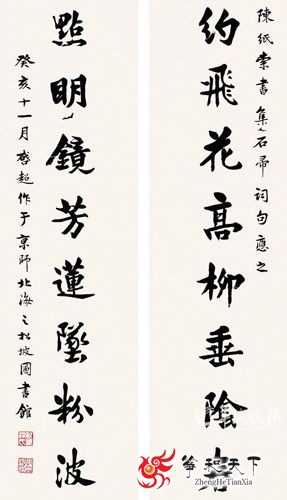 陳紙索書集石帚詞句應之
約飛花高柳垂陰
點明鏡芳蓮墜粉波
癸亥十一月啓超作于京師北海之松坡圖書館
天下
ZhengHeTianXia